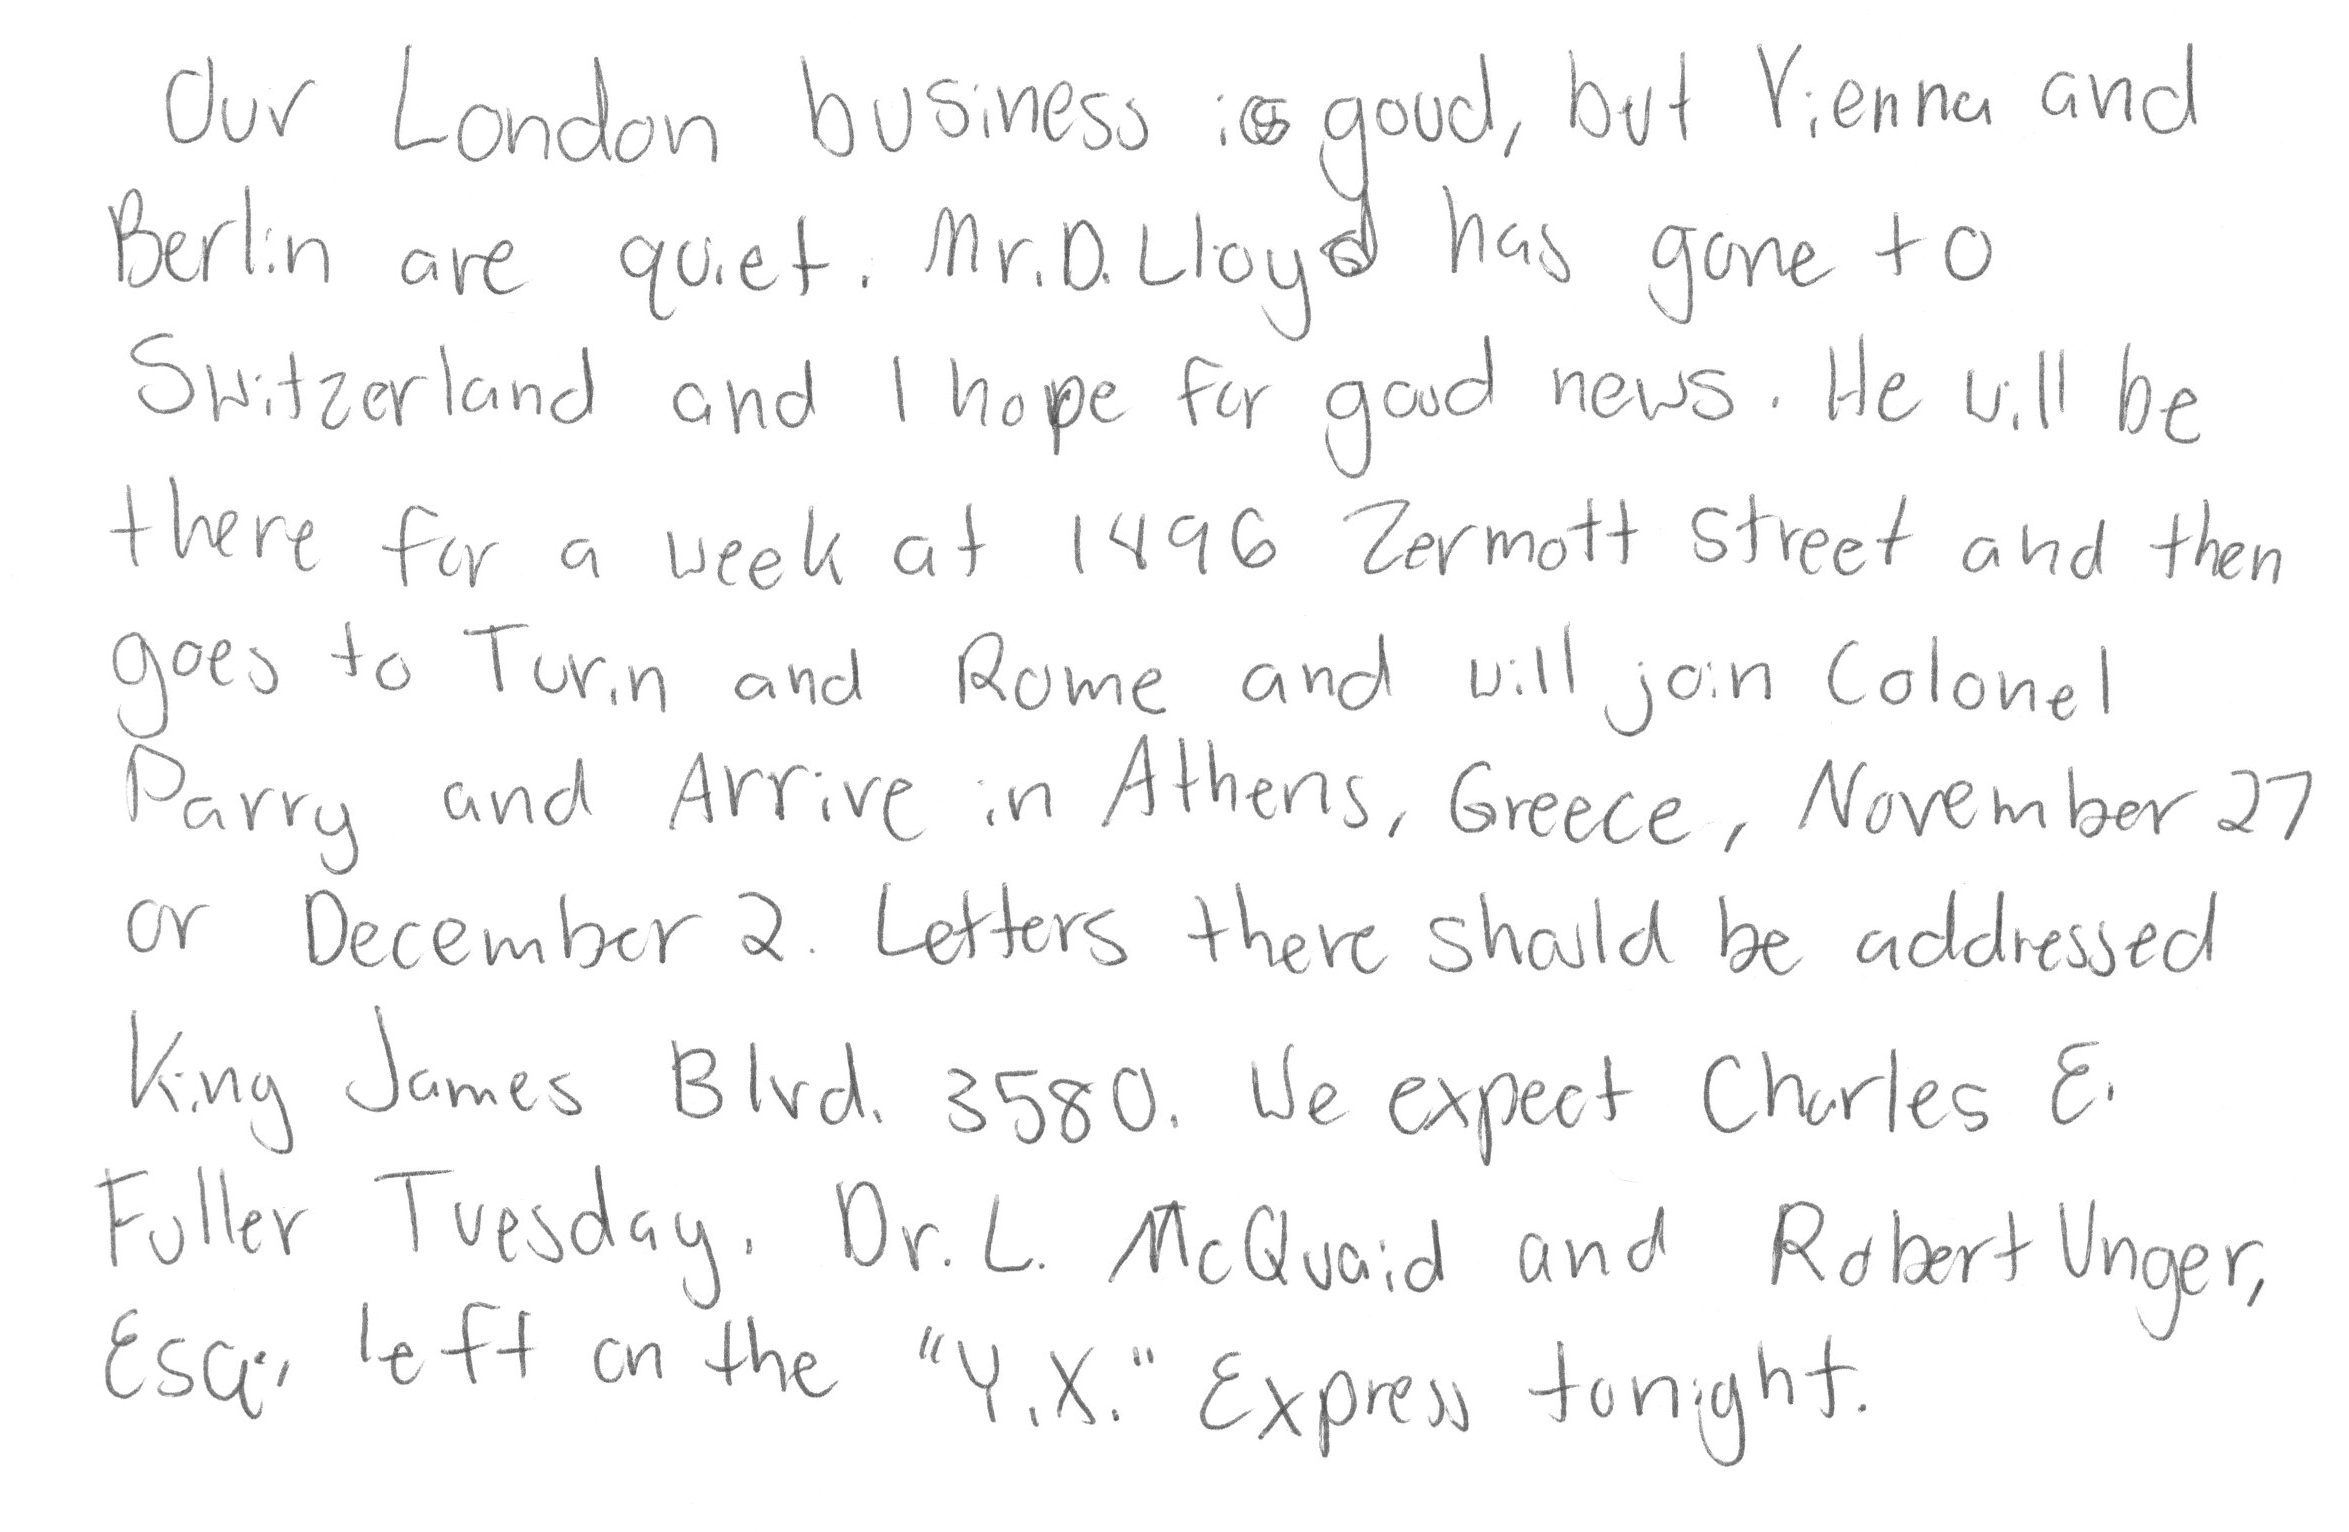 Our London business is good, but Vienna and
Berlin are quiet. Mr. D. Lloyd has gone to
Switzerland and I hope for good news. He will be
there for a week at 1496 Zermott Street and then
goes to Turin and Rome and will join Colonel
Parry and Arrive in Athens, Greece, November 27
or December 2. Letters there should be addressed
King James Blvd. 3580. We expect Charles E.
Fuller Tuesday. Dr. L. McQuaid and Robert Unger,
Esq., left on the "Y.X." Express tonight.